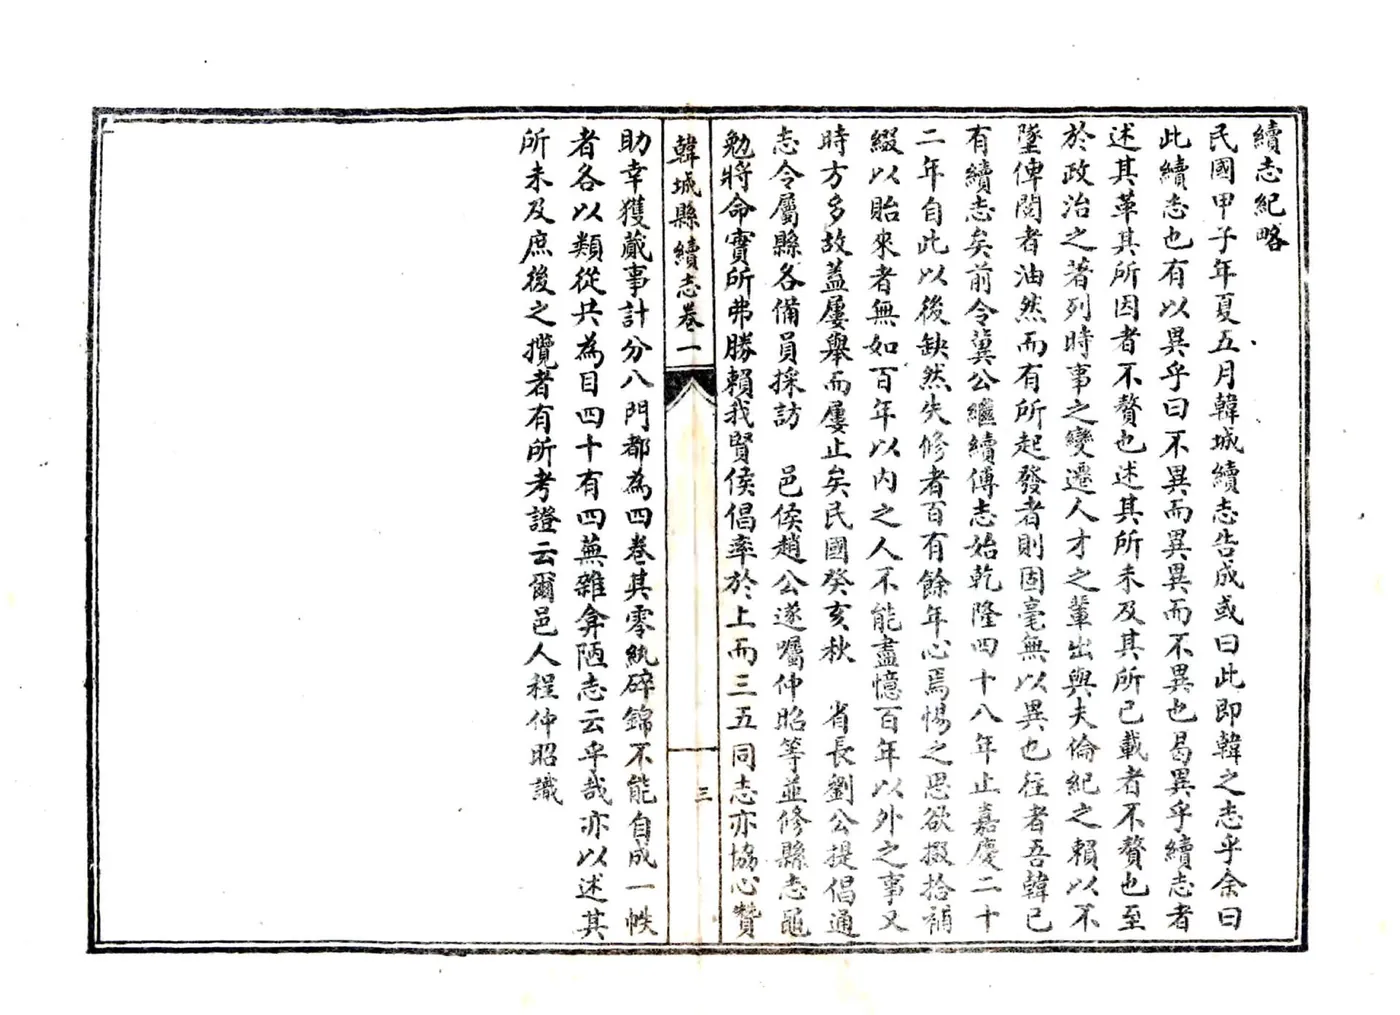 續志紀略
民國甲子年夏五月韓城續志告成或曰此即韓之志乎余曰
此續志也有以異乎曰不異而異異而不異也曷異乎續志者
述其革其所因者不贅也述其所未及其所已載者不贅也至
於政治之著列時事之變遷人才之輩出與夫倫紀之賴以不
墜俾閱者油然而有所起發者則固毫無以異也往者吾韓已
有續志矣前令冀公繼續傅志始乾隆四十八年止嘉慶二十
二年自此以後缺然失修者百有餘年心焉惕之思欲掇拾補
綴以貽來者無如百年以內之人不能盡憶百年以外之事又
時方多故蓋屢舉而屢止矣民國癸亥秋 省長劉公提倡通
志令屬縣各備員採訪 邑侯趙公遂囑仲昭等並修縣志黽
勉將命實所弗勝賴我賢侯倡率於上而三五同志亦協心贊
韓城縣續志卷一
三
助幸獲蕆事計分八門都為四卷其零紈碎錦不能自成一帙
者各以類從共為目四十有四蕪雜弇陋志云乎哉亦以述其
所未及庶後之攬者有所考證云爾邑人程仲昭識